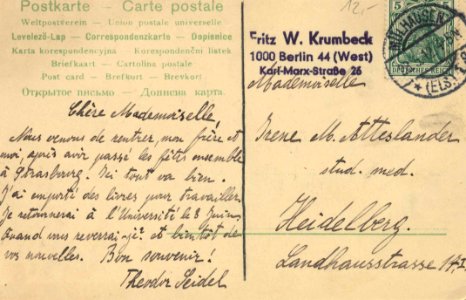 Postkarte - Carte postale
Weltpostverein - Union postale universelle
Levelező-Lap - Correspondenzkarte - Dopisnice
Karta korespondencyjna - Korespondenční lístek
Briefkaart - Cartolina postale
Post card - Brefkort - Brevkort
Открытое письмо - Дописна карта.
12,-
Fritz W. Krumbeck
1000 Berlin 44 (West)
Karl-Marx-Straße 26
MÜLHAUSEN
(ELS.)
5
DEUTSCHES REICH
Chère Mademoiselle,
Nous venons de rentrer, mon frère et
moi, après avoir passé les fêtes ensemble
à Strasbourg. Ici tout va bien.
J'ai emporté des livres pour travailler.
Je retournerai à l'Université le 8 Juin.
Quand vous reverrai-je? et bientôt de
vos nouvelles. Bon souvenir!
Theodor Seidel
Mademoiselle
Irene M. Atteslander
stud. med.
Heidelberg.
Landhausstrasse